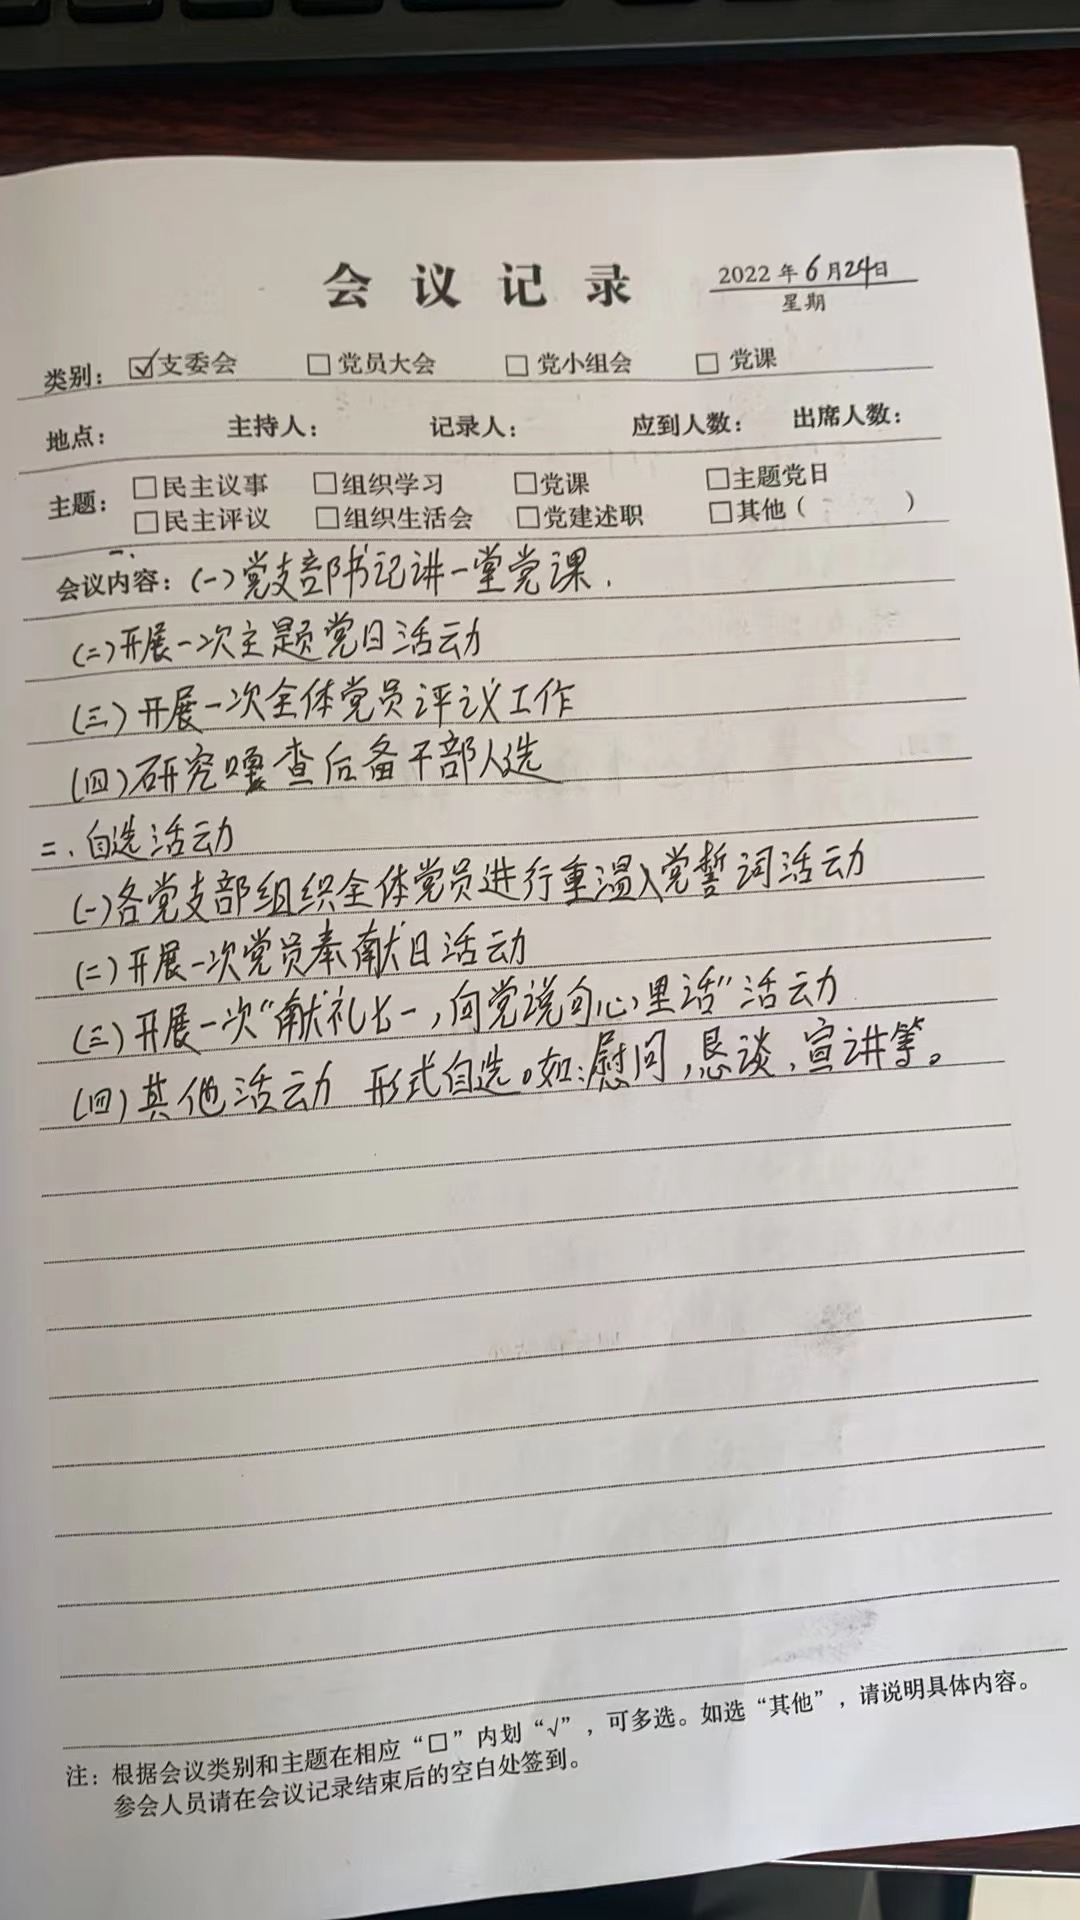 会议记录
2022年6月24日
星期
类别：☑支委会 □党员大会 □党小组会 □党课
地点： 主持人： 记录人： 应到人数： 出席人数：
主题：□民主议事 □组织学习 □党课 □主题党日
□民主评议 □组织生活会 □党建述职 □其他（ ）
一、
会议内容：(一)党支部书记讲一堂党课.
(二)开展一次主题党日活动
(三)开展一次全体党员评议工作
(四)研究嘎查后备干部人选
二、自选活动
(一)各党支部组织全体党员进行重温入党誓词活动
(二)开展一次党员奉献日活动
(三)开展一次“献礼七一,向党说句心里话”活动
(四)其他活动 形式自选。如:慰问,恳谈,宣讲等。
注：根据会议类别和主题在相应“□”内划“√”，可多选。如选“其他”，请说明具体内容。
参会人员请在会议记录结束后的空白处签到。